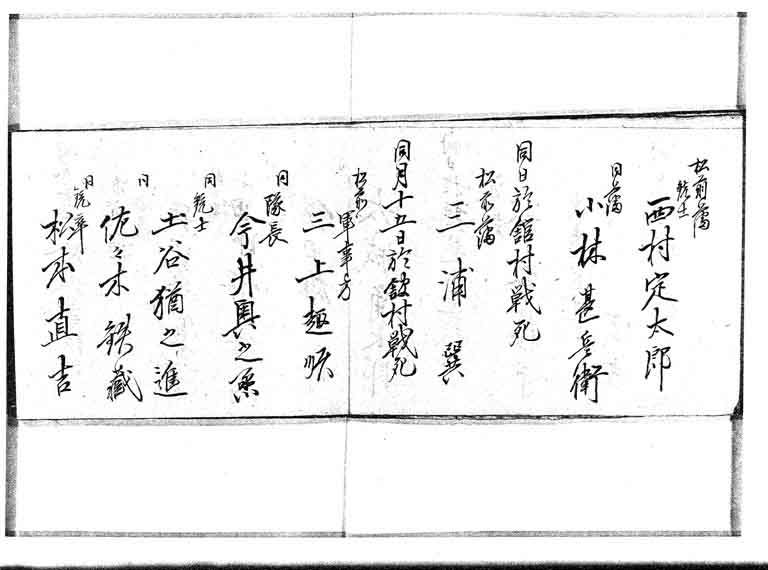 松前藩
銃士
西村定太郎
同藩
小林甚兵衛
同日於舘村戦死
松前藩
三浦巽
同月十五日於舘村戦死
松前
軍事方
三上超
同
隊長
今井興之
同
銃士
土谷猶之進
同
佐々木鉄蔵
同
銃卒
松本直吉